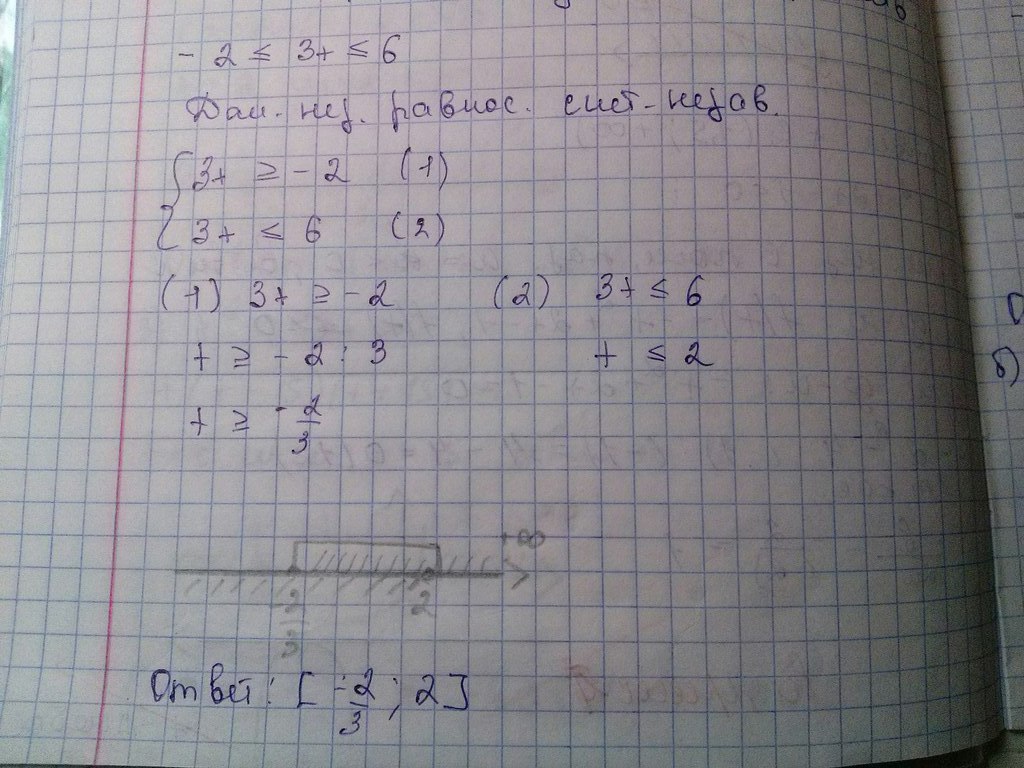 - 2 ≤ 3t ≤ 6
Дан. нер. равнос. сист-нерав.
{ 3t ≥ - 2 (1)
3t ≤ 6 (2)
(1) 3t ≥ - 2 (2) 3t ≤ 6
t ≥ - 2 : 3 t ≤ 2
t ≥ - 2/3
+∞
-2/3 2
Ответ: [ -2/3 ; 2]
б)